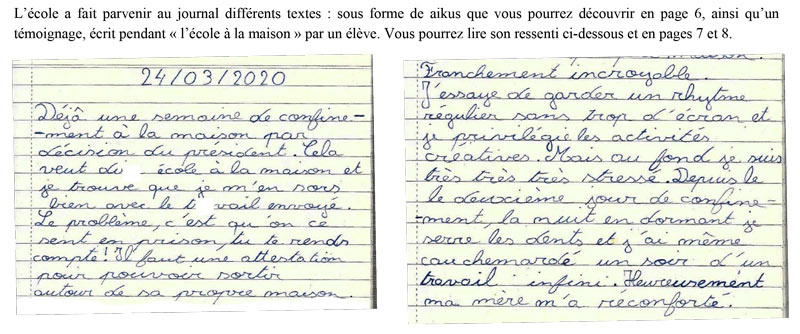 L'école a fait parvenir au journal différents textes : sous forme de aikus que vous pourrez découvrir en page 6, ainsi qu'un
témoignage, écrit pendant « l'école à la maison » par un élève. Vous pourrez lire son ressenti ci-dessous et en pages 7 et 8.
24/03/2020
Déjà une semaine de confine-
-ment à la maison par
décision du président. Cela
veut école à la maison et
je trouve que je m'en sors
bien avec le envoyé.
Le problème, c'est qu'on ce
sent en prison, tu te rends
compte! Il faut une attestation
pour pouvoir sortir
autour de sa propre maison.
Franchement incroyable.
J'essaye de garder un rhytme
régulier sans trop d'écran et
je privilégie les activités
créatives. Mais au fond je suis
très très très stressé. Depuis le
le deuxième jour de confine-
-ment, la nuit en dormant je
serre les dents et j'ai même
cauchemardé un soir d'un
travail infini. Heureusement
ma mère m'a réconforté.